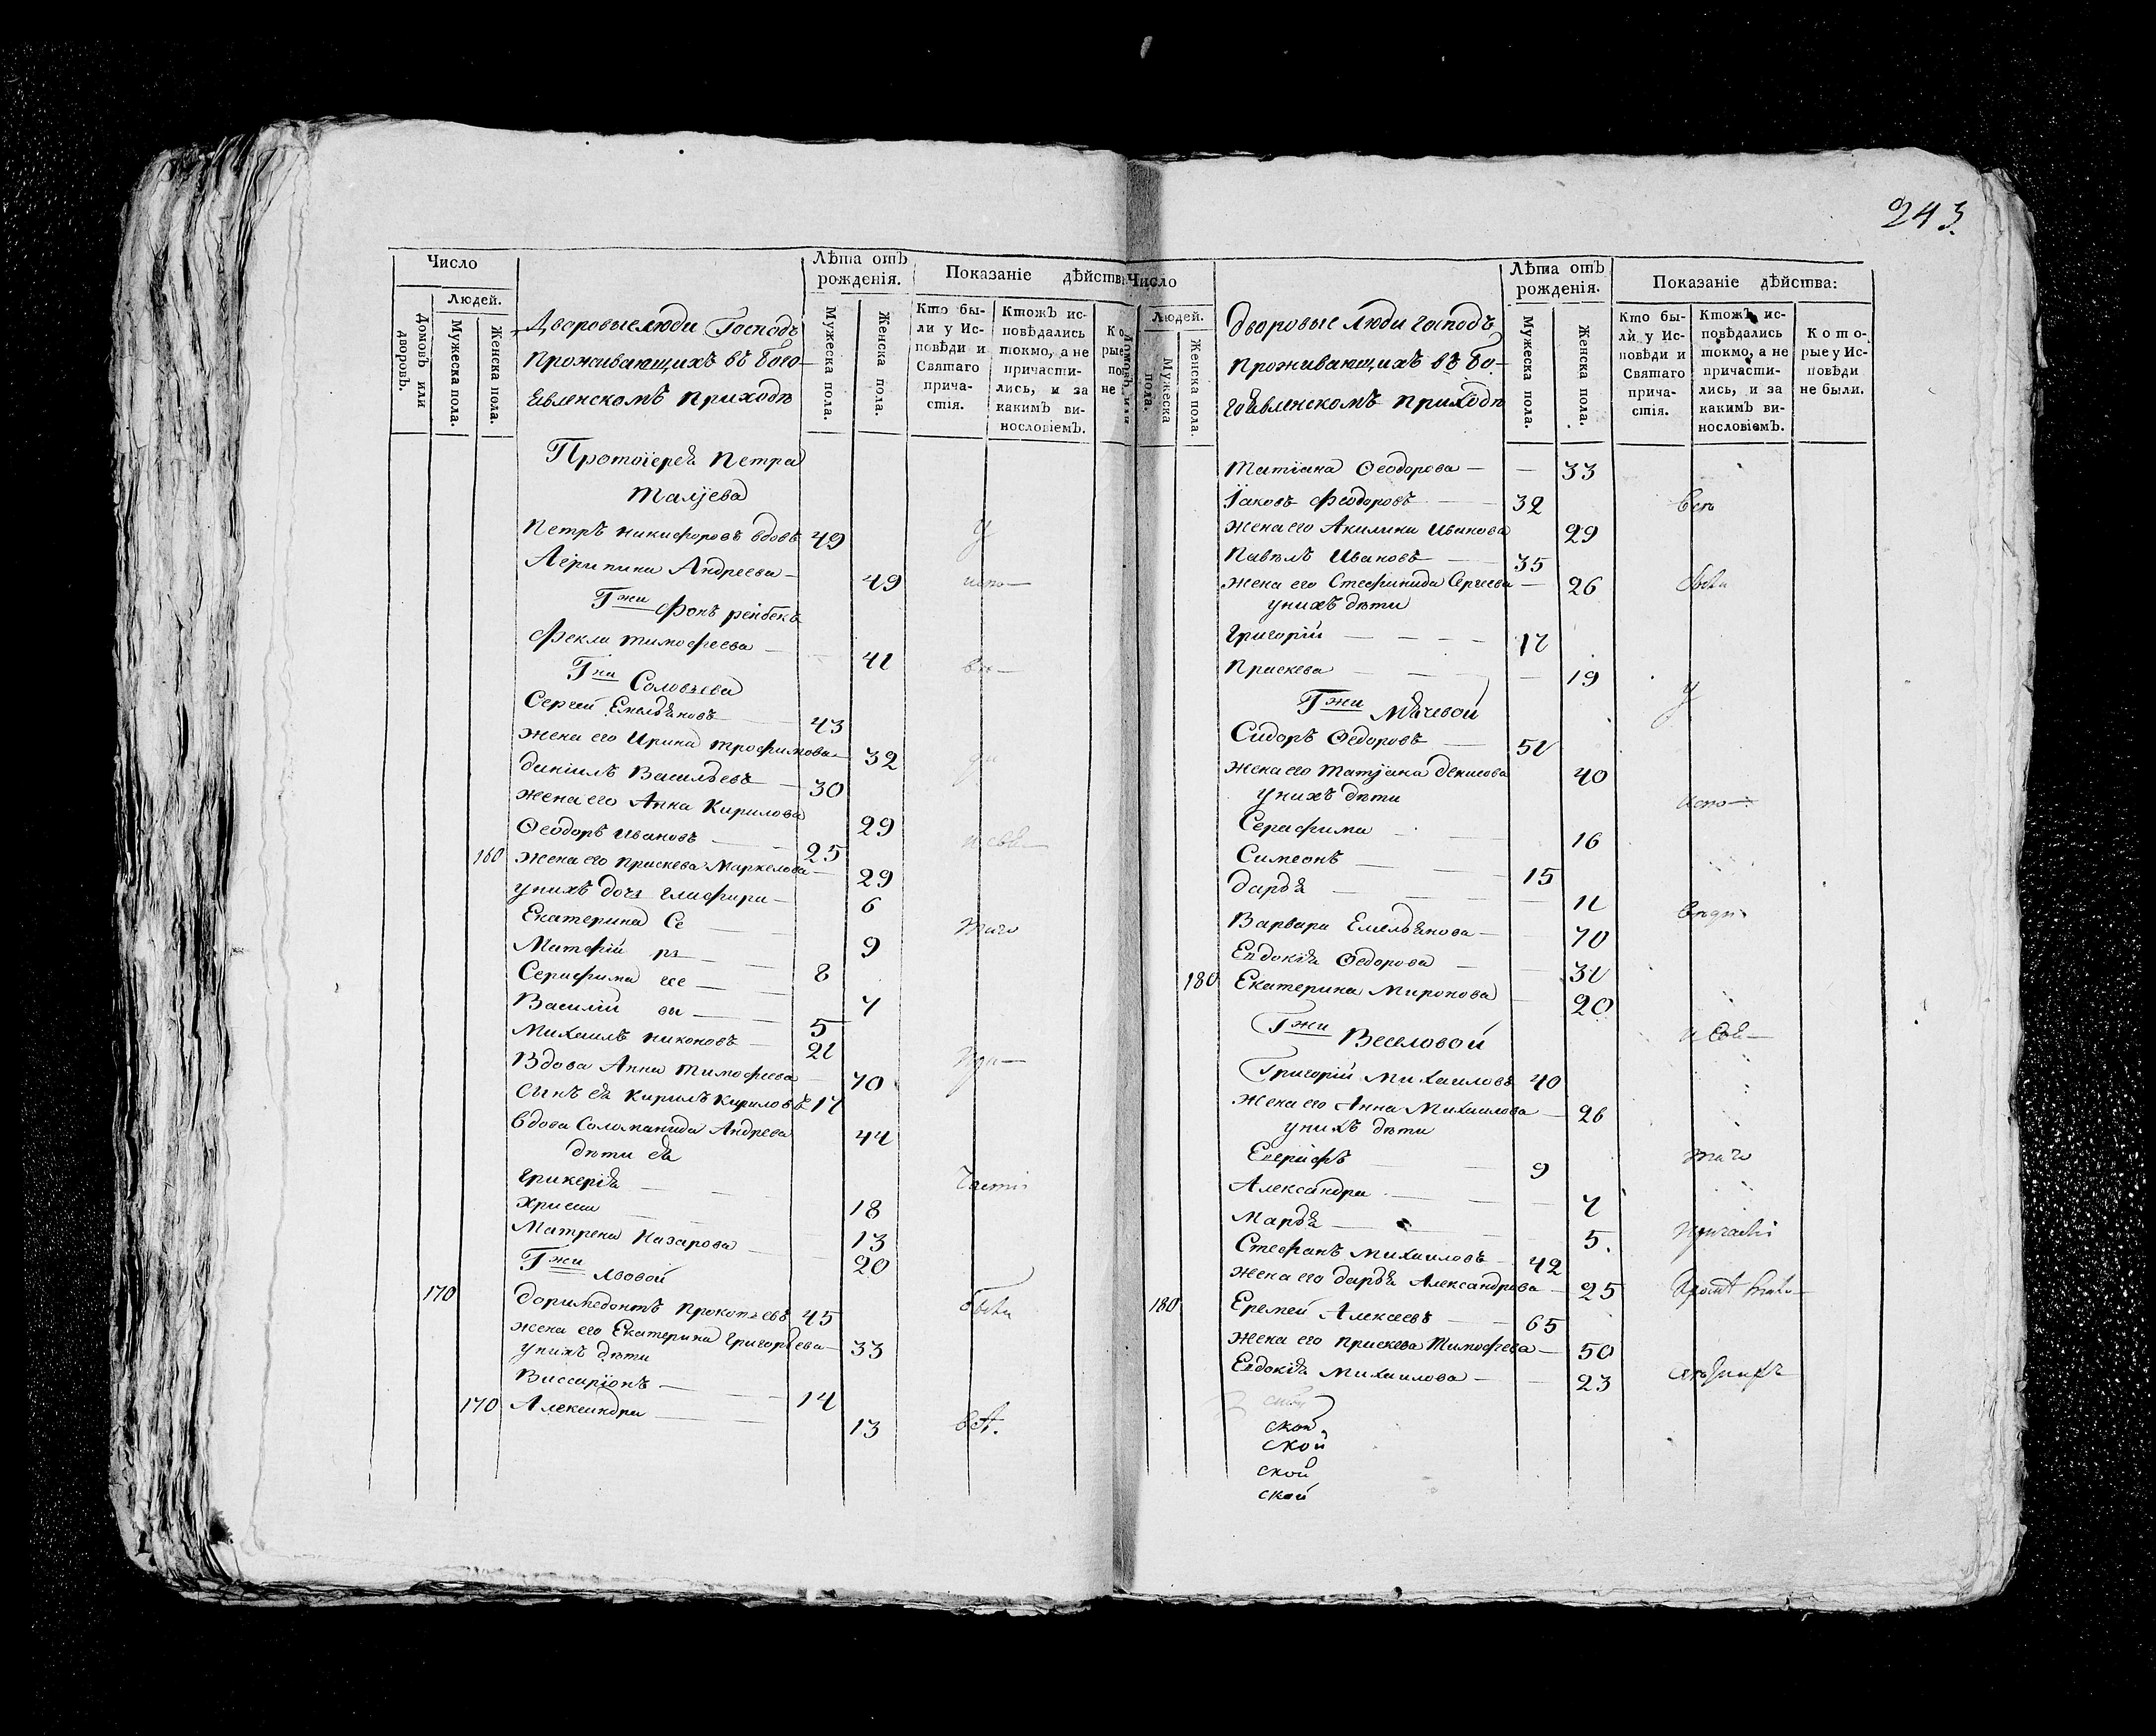 243
Число
Людей.
Домовъ или дворовъ.
Мужеска пола.
Женска пола.
Лѣта отъ рожденія.
Мужеска пола.
Женска пола.
Показаніе дѣйства
Кто бы-
ли у Ис-
повѣди и
Святаго
прича-
стія.
Ктожъ ис-
повѣдались
токмо, а не
причасти-
лись, и за
какимъ ви-
нословіемъ.
Дворовые люди Господъ
проживающихъ въ бого-
явленскомъ приходѣ
Протоіерея Петра
Талуева
Петръ никифоровъ вдовъ 49
Андреева 49
Гжи Фонъ рейбекъ
Фекла тимофеева 41
Гна Соловьева
Сергей Емельяновъ 43
жена его Ирина трофимова 32
даніилъ Васильевъ 30
жена его Анна Кирилова 29
Ѳеодоръ Ивановъ 25
160 жена его праскева Маркелова 29
унихъ дочь глафира 6
Екатерина Се 9
Матфій рг 8
Серафима ее 7
Василій 5
Михаилъ никоновъ 21
Вдова Анна тимофеева 70
сынъ ея Кирилъ Кириловъ 17
вдова Соломанида Андрева 44
дѣти ея
Гликерія 18
Хрисия 13
Матрена Назарова 20
Гжи Львовой
170 доримедонтъ прокопьевъ 45
жена его Екатерина григорьева 33
унихъ дѣти
Виссаріонъ 14
170 Александра 13
испо-
таго
Число
Людей.
Мужеска пола.
Женска пола.
Лѣта отъ рожденія.
Мужеска пола.
Женска пола.
Показаніе дѣйства:
Кто бы-
ли у Ис-
повѣди и
Святаго
прича-
стія.
Ктожъ ис-
повѣдались
токмо, а не
причасти-
лись, и за
какимъ ви-
нословіемъ.
Кото-
рые у Ис-
повѣди
не были.
дворовые люди господъ
проживающихъ въ бо-
гоявленскомъ приходѣ
татіана Ѳеодорова 33
Іаковъ Феодоровъ 32
жена его Акилина Иванова 29
Павелъ Ивановъ 35
жена его Стефанида Сергеева 26
унихъ дѣти
григорій 12
праскева 19
Гжи Мячевой
Сидоръ Ѳедоровъ 51
жена его татіана денисова 40
унихъ дѣти
Серафима 16
Симеонъ 15
дарья 11
Варвара Емельянова 70
Евдокія Ѳедорова 31
180 Екатерина Миронова 20
Гжи Веселовой
Григорій Михаиловъ 40
жена его Анна Михаилова 26
унихъ дѣти
Евграфъ 9
Александра 7
Марья 5
Стефанъ Михаиловъ 42
жена его дарья Александрова 25
180 Еремей Алексеевъ 65
жена его праскева Тимофеева 50
Евдокія Михаилова 23
ской
ской
ской
ской
испо-
таго